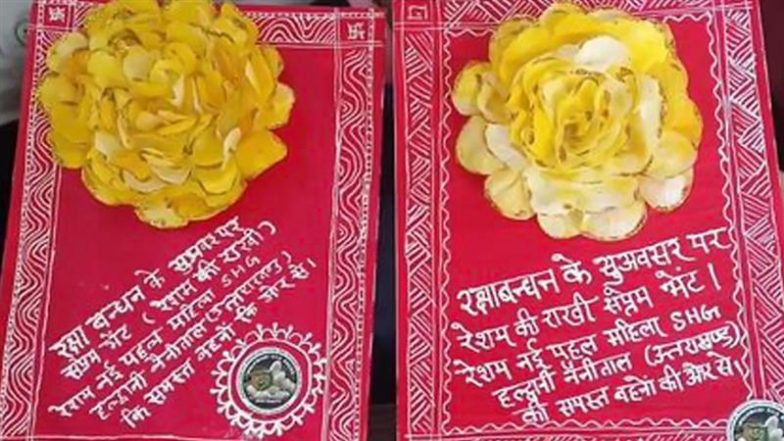 रक्षा बन्धन के सुअवसर पर
सप्रेम भेंट ( रेशम की राखी )
रेशम नई पहल महिला SHG
हल्द्वानी नैनीताल (उत्तराखण्ड)
कि समस्त बहनों कि ओर से।
रक्षाबन्धन के सुअवसर पर
रेशम की राखी सप्रेम भेंट ।
रेशम नई पहल महिला SHG
हल्द्वानी नैनीताल (उत्तराखण्ड)
की समस्त बहनो की ओर से।